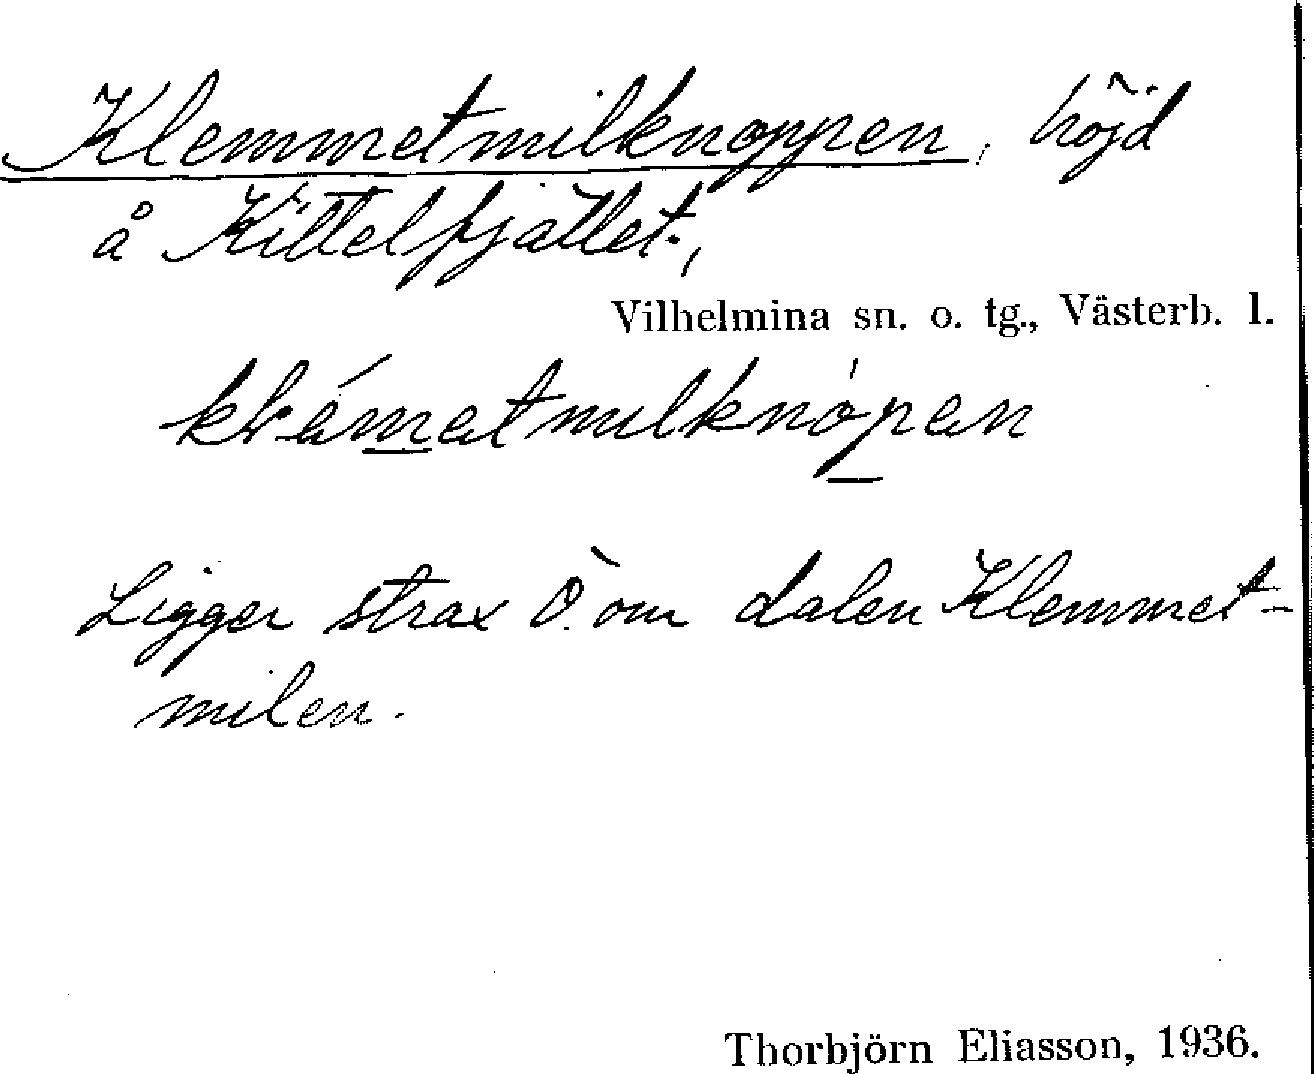 Klemmetmilknoppen, höjd
å Kittelfjället,
Vilhelmina sn. o. tg., Västerb. l.
klémetmilknòpen
Ligger strax Ö. om dalen Klemmet-
milen.
Thorbjörn Eliasson, 1936.